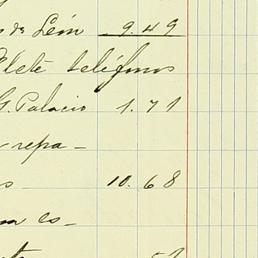 de León 9.49
Flete teléfonos
G. Palacio 1.71
repa-
10.68
es-